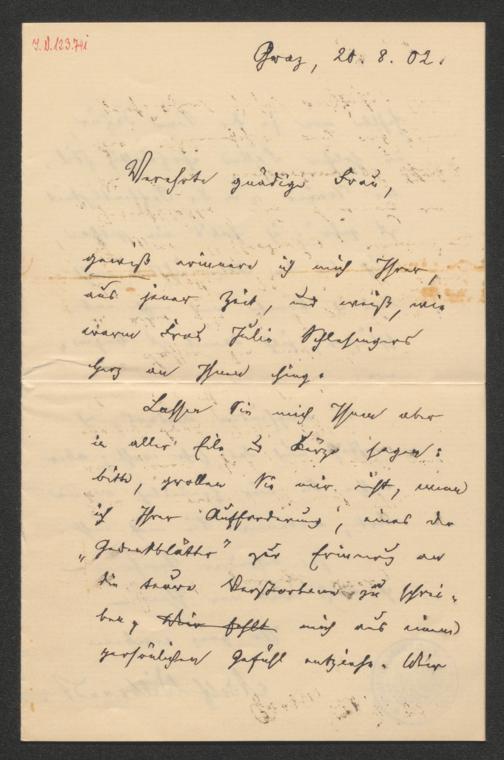 I.N.123.741
Graz, 20. 8. 02.
Verehrte gnädige Frau,
gewiß erinnere ich mich Ihrer,
aus jener Zeit, und weiß, wie
warm Frau Julie Schlesingers
Herz an Ihnen hing.
Lassen Sie mich Ihnen aber
in aller Eile u Kürze sagen:
bitte, grollen Sie mir nicht, wenn
ich Ihrer Aufforderung, eines der
„Gedenkblätter" zur Erinnerung an
die teure Verstorbene zu schrei-
ben, Wir fehlt mich aus einem
persönlichen Gefühl entziehe. Wir